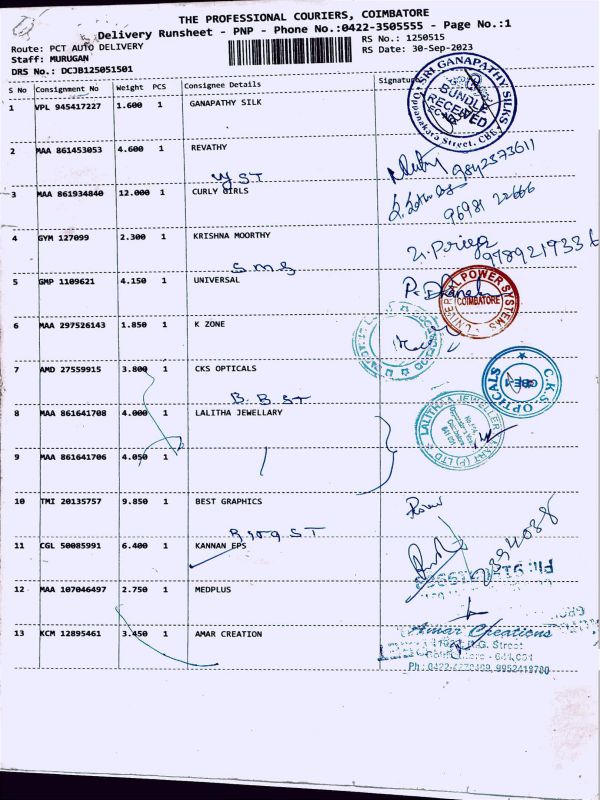 THE PROFESSIONAL COURIERS, COIMBATORE
Delivery Runsheet - PNP - Phone No.:0422-3505555 - Page No.:1
Route: PCT AUTO DELIVERY
RS No.: 1250515
Staff: MURUGAN
RS Date: 30-Sep-2023
DRS No.: DCJB125051501
S No Consignment No Weight PCS Consignee Details Signature
1 VPL 945417227 1.600 1 GANAPATHY SILK
SRI GANAPATHY SILKS
BUNDLE
RECEIVED
Oppanakara Street, CBE
2 MAA 861453053 4.600 1 REVATHY
9842373611
3 MAA 861934840 12.000 1 CURLY GIRLS
96981 22666
4 GYM 127099 2.300 1 KRISHNA MOORTHY
S.M.S
5 GMP 1109621 4.150 1 UNIVERSAL
UNIVERSAL POWER SYSTEMS
COIMBATORE
6 MAA 297526143 1.850 1 K ZONE
7 AMD 27559915 3.800 1 CKS OPTICALS
C.K.S OPTICALS
CBE-1
B.B.ST
8 MAA 861641708 4.000 1 LALITHA JEWELLARY
LALITHAA JEWELLERY MART (P) LTD
9 MAA 861641706 4.050 1
10 TMI 20135757 9.850 1 BEST GRAPHICS
11 CGL 50085991 6.400 1 KANNAN EPS
12 MAA 107046497 2.750 1 MEDPLUS
13 KCM 12895461 3.450 1 AMAR CREATION
Amar Creations